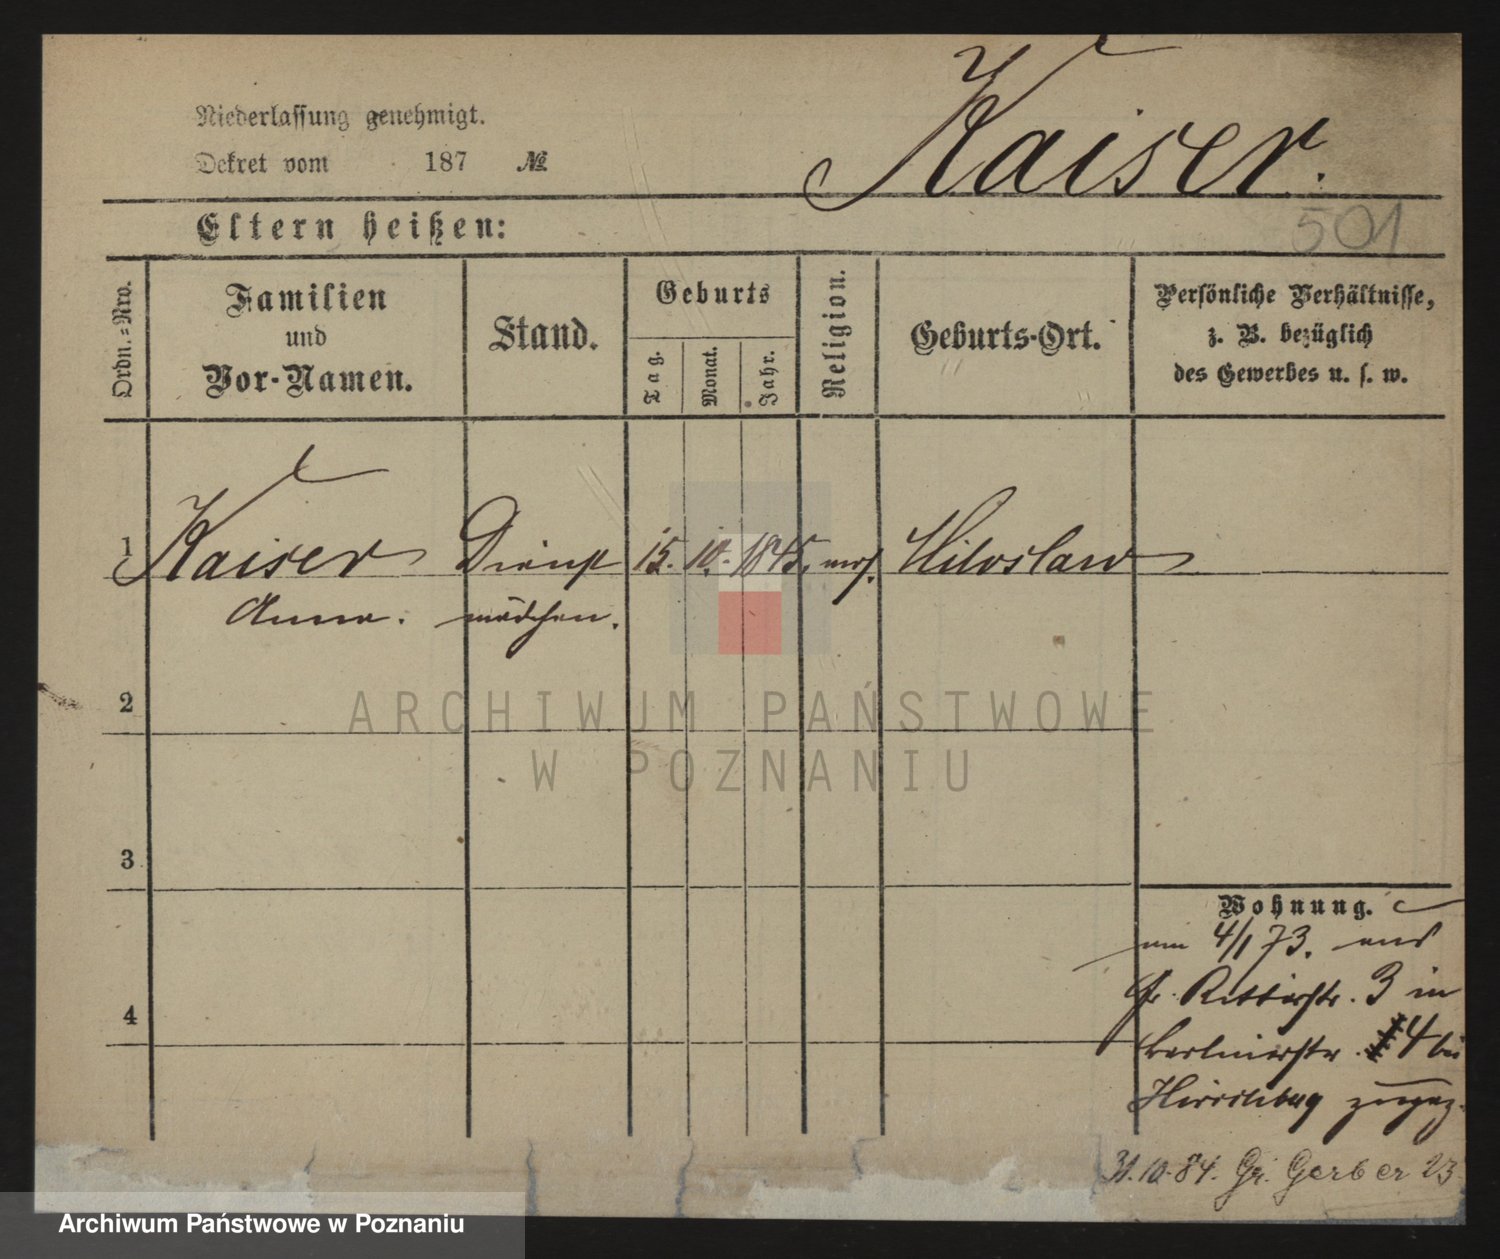 Kaiser.
Niederlassung genehmigt.
Dekret vom 187 №
501
Eltern heißen:
Ordn.=Nro.
Familien
und
Vor-Namen.
Stand.
Geburts
Tag.
Monat.
Jahr.
Religion.
Geburts-Ort.
Persönliche Verhältnisse,
z. B. bezüglich
des Gewerbes u. s. w.
1 Kaiser Dienst 15. 10. 1845.
Anna. mädchen.
2
ARCHIWUM PAŃSTWOWE
W POZNANIU
3
Wohnung.
4/1 73.
Gr. Ritterstr. 3 in
4
Berlinerstr. 4 bei
31.10.84. Gr. Gerber 23
Archiwum Państwowe w Poznaniu